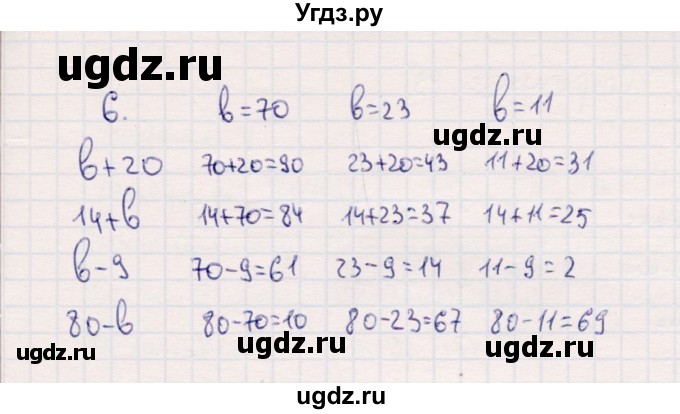 Угдз.ру
ugdz.ru
6. в=70 в=23 в=11
ugdz.ru
в+20 70+20=90 23+20=43 11+20=31
14+в 14+70=84 14+23=37 14+11=25
в-9 70-9=61 23-9=14 11-9=2
80-в 80-70=10 80-23=67 80-11=69
ugdz.ru ugdz.ru ugdz.ru
ugdz.ru